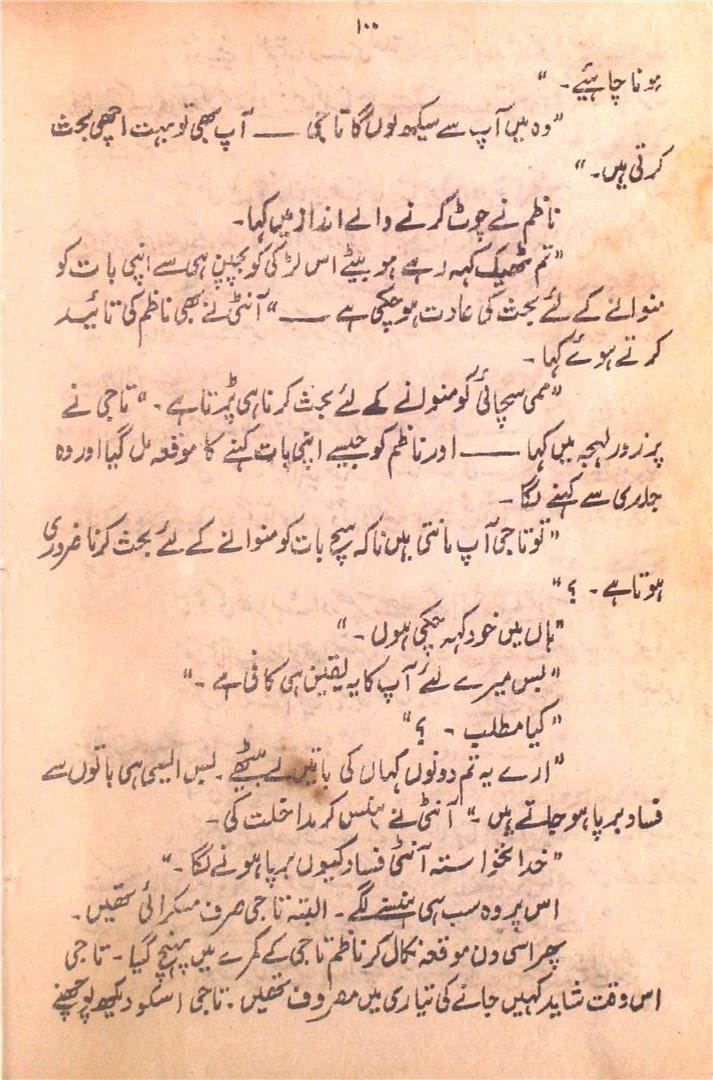 ۱۰۰
ہونا چاہیئے۔"
"وہ میں آپ سے سیکھ لوں گا تاجی —— آپ بھی تو بہت اچھی بحث
کرتی ہیں۔"
ناظم نے چوٹ کرنے والے انداز میں کہا۔
"تم ٹھیک کہہ رہے ہو بیٹے اس لڑکی کو بچپن ہی سے اپنی بات کو
منوانے کے لئے بحث کی عادت ہو چکی ہے ——" آنٹی نے بھی ناظم کی تائید
کرتے ہوئے کہا۔
"ممی سچائی کو منوانے کے لئے بحث کرنا ہی پڑتا ہے۔" تاجی نے
پر زور لہجہ میں کہا —— اور ناظم کو جیسے اپنی بات کہنے کا موقعہ مل گیا اور وہ
جلدی سے کہنے لگا۔
"تو تاجی آپ مانتی ہیں نا کہ سچ بات کو منوانے کے لئے بحث کرنا ضروری
ہوتا ہے۔ ؟"
"ہاں میں خود کہہ چکی ہوں۔"
"بس میرے لئے آپ کا یہ یقین ہی کافی ہے۔"
"کیا مطلب۔ ؟"
"ارے یہ تم دونوں کہاں کی باتیں لے بیٹھے۔ بس ایسی ہی باتوں سے
فساد برپا ہو جاتے ہیں۔" آنٹی نے ہنس کر مداخلت کی۔
"خدانخواستہ آنٹی فساد کیوں برپا ہونے لگا۔"
اس پر وہ سب ہی ہنسنے لگے۔ البتہ تاجی صرف مسکرائی تھیں۔
پھر اسی دن موقعہ نکال کر ناظم تاجی کے کمرے میں پہنچ گیا۔ تاجی
اس وقت شاید کہیں جانے کی تیاری میں مصروف تھیں۔ تاجی اسکو دیکھ پوچھنے